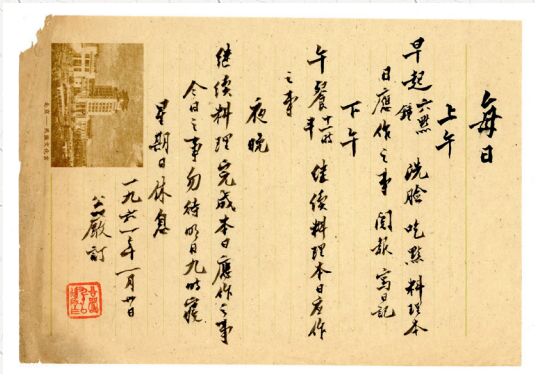 每日
上午
早起六點鐘 洗臉 吃點 料理本
日應作之事 閱報 寫日記
下午
午餐十二時半 继续料理本日应作
之事
夜晚
继续料理完成本日應作之事
今日之事勿待明日九時寢
星期日休息
一九六一年一月廿日
厰訂